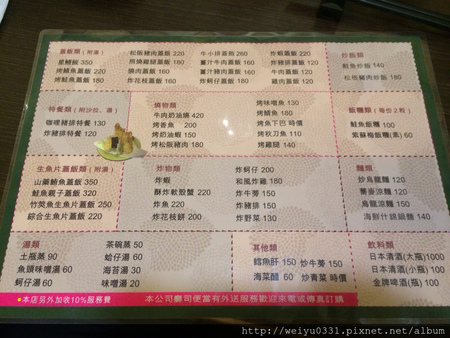 蓋飯類（附湯）
星鰻飯 350
烤鯖魚蓋飯 230
烤鮭魚蓋飯 230
松阪豬肉蓋飯 220
照燒雞腿蓋飯 200
燒肉蓋飯 160
炸花枝蓋飯 200
牛小排蓋飯 260
薑汁牛肉蓋飯 160
薑汁豬肉蓋飯 160
炸蚵仔蓋飯 180
炸蝦蓋飯 220
炸豬排蓋飯 180
牛肉蓋飯 160
雞肉蓋飯 160
炒飯類
鮭魚炒飯 140
松板豬肉炒飯 180
特餐類（附沙拉、湯）
咖哩豬排特餐 130
炸豬排特餐 120
燒物類
牛肉奶油燒 420
烤香魚 200
烤奶油蝦 150
烤松阪豬肉 180
烤喳嚕魚 130
烤鯖魚 180
烤魚下巴 時價
烤秋刀魚 110
烤雞腿 140
飯糰類（每份2粒）
鮭魚飯糰 100
紫蘇梅飯糰(素) 60
生魚片蓋飯類（附湯）
山藥鮪魚蓋飯 350
鮭魚親子蓋飯 320
竹筴魚生魚蓋飯 250
綜合生魚片蓋飯 220
炸物類
炸蝦
酥炸軟殼蟹 220
炸魚 220
炸花枝餅 200
炸蚵仔 200
和風炸雞 180
炸牛蒡 150
炸豬排 150
炸野菜 130
麵類
炒烏龍麵 150
蕎麥涼麵 120
烏龍涼麵 150
海鮮什錦鍋麵 140
湯類
土瓶蒸 90
魚頭味噌湯 60
蚵仔湯 60
茶碗蒸 50
蛤仔湯 60
海苔湯 30
味噌湯 20
其他類
鱈魚肝 150
海菜醋 60
炒牛蒡 150
炒青菜 時價
飲料類
日本清酒(大瓶)1000
日本清酒(小瓶) 180
金牌啤酒(瓶) 100
●本店另外加收10%服務費
本公司壽司便當有外送服務歡迎來電或傳真訂購
http://weiyu0331.pixnet.net/album